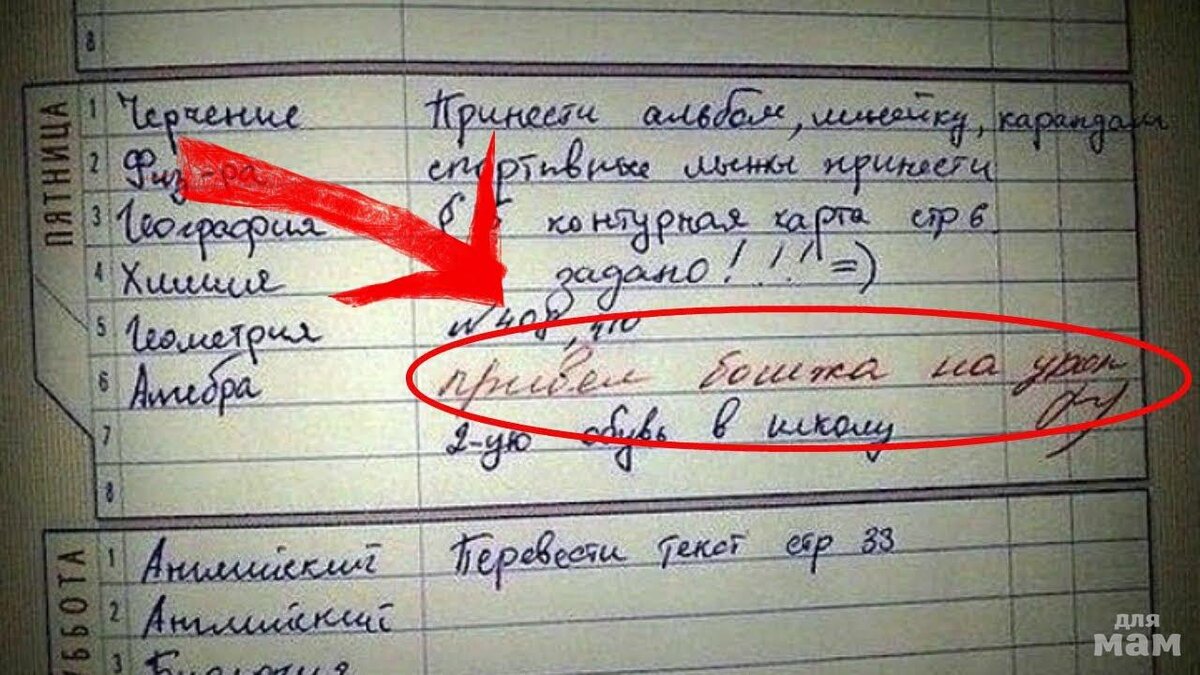 8
ПЯТНИЦА
1 Черчение Принести альбом, линейку, карандаш
2 Физ-ра спортивные лыжи принести
3 География контурная карта стр 6
4 Химия задано!!! =)
5 Геометрия №408, 410
6 Алгебра привел бошка на урок
7 2-ую обувь в школу
8
СУББОТА
1 Английский Перевести текст стр 33
2 Английский
3 Биология
для
мам